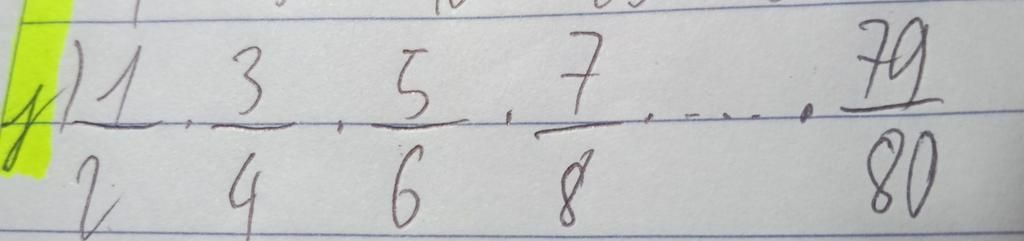 y) 1/2 · 3/4 · 5/6 · 7/8 · ..... · 79/80